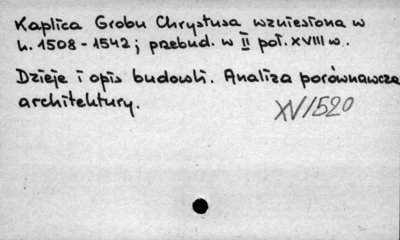 Kaplica Grobu Chrystusa wzniesiona w
l. 1508-1542; przebud. w II poł. XVIII w.
Dzieje i opis budowli. Analiza porównawcza
architektury.
XV/520